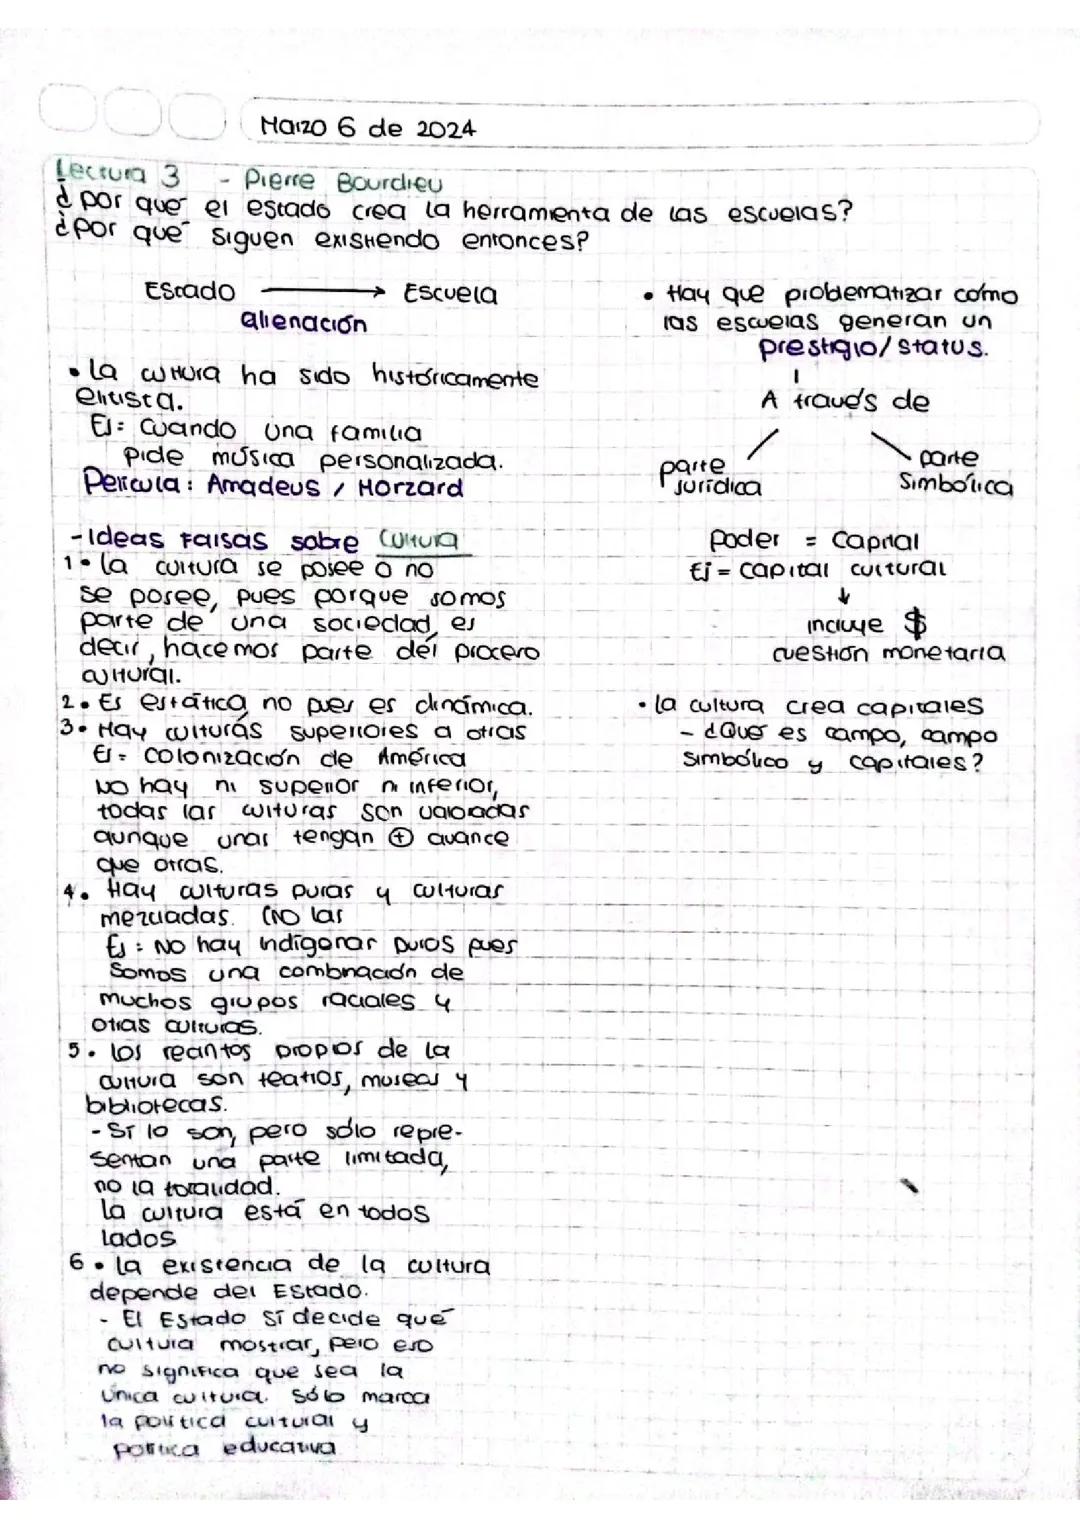 Marzo 6 de 2024
Lectura 3 - Pierre Bourdieu
¿por qué el estado crea la herramienta de las escuelas?
¿por qué siguen existiendo entonces?
Estado → Escuela
alienación
• La cultura ha sido históricamente
elitista.
Ej: Cuando una familia
pide música personalizada.
Película: Amadeus / Horzard
- Ideas Falsas sobre Cultura
1• La cultura se posee o no
se posee, pues porque somos
parte de una sociedad, es
decir, hacemos parte del proceso
cultural.
2• Es estática, no pues es dinámica.
3• Hay culturas superiores a otras
Ej= Colonización de América
No hay ni superior ni inferior,
todas las culturas son valoradas
aunque unas tengan ⊕ avance
que otras.
4. Hay culturas puras y culturas
mezcladas. (No las
Ej: No hay indígenas puros pues
somos una combinación de
muchos grupos raciales y
otras culturas.
5. los recintos propios de la
cultura son teatros, museos y
bibliotecas.
- Sí lo son, pero sólo repre-
sentan una parte limitada,
no la totalidad.
La cultura está en todos
lados
6• La existencia de la cultura
depende del Estado.
- El Estado sí decide qué
cultura mostrar, pero eso
no significa que sea la
única cultura. Sólo marca
la política cultural y
política educativa
• Hay que problematizar cómo
las escuelas generan un
prestigio/status.
A través de
parte
jurídica
parte
simbólica
Poder = Capital
Ej = Capital cultural
↓
incluye $
cuestión monetaria
• la cultura crea capitales
- ¿Qué es campo, campo
simbólico y capitales?